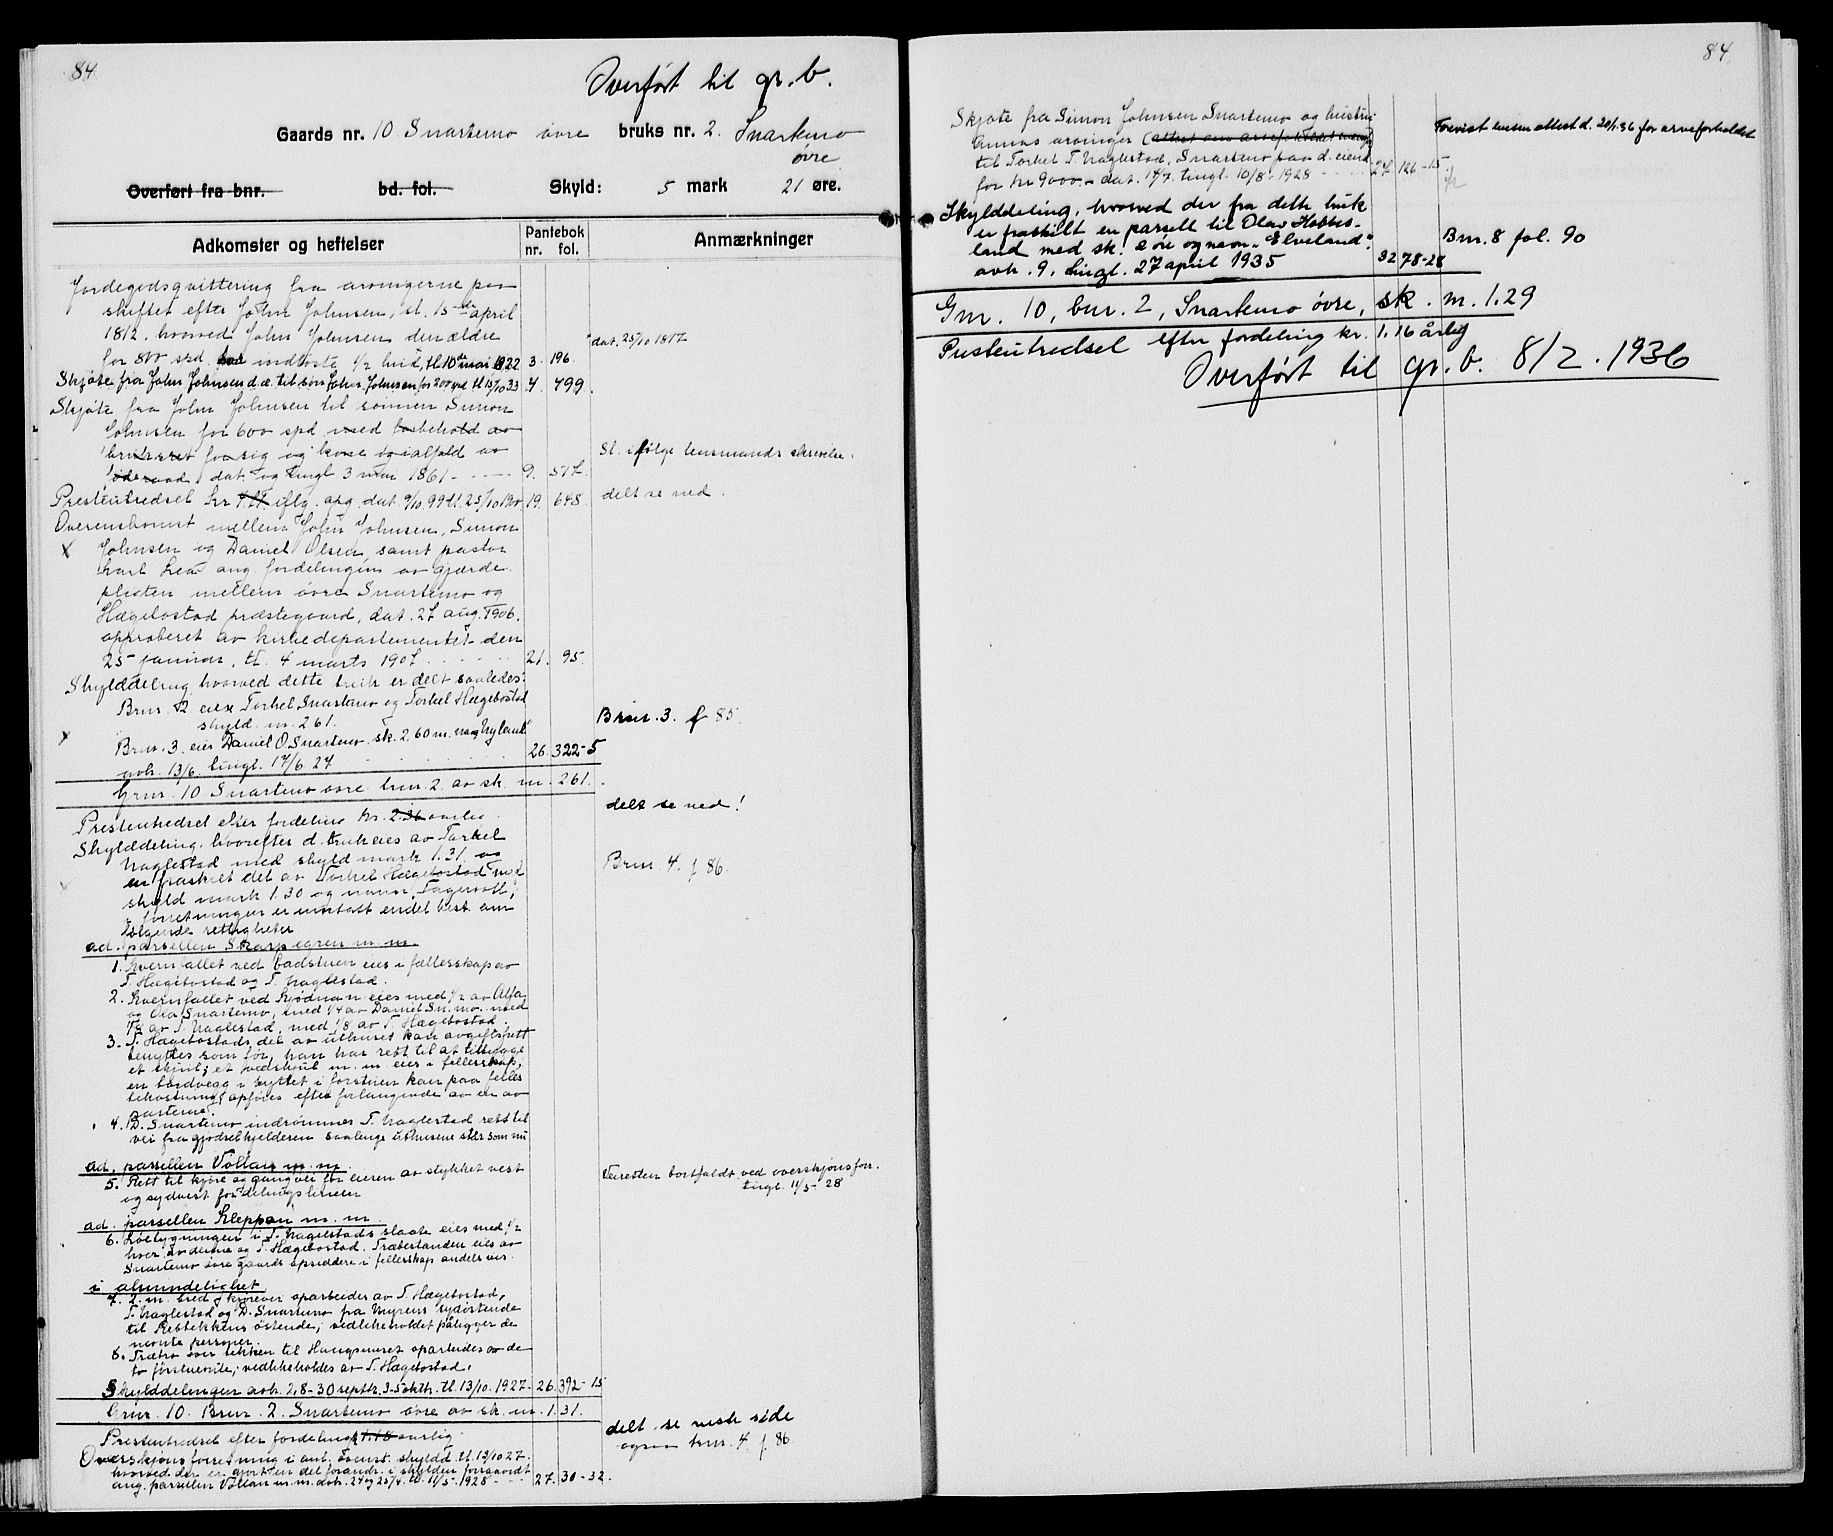 84
Overført til gr. b.
Gaards nr. 10 Snartemo øvre bruks nr. 2. Snartemo
øvre
Overført fra bnr. bd. fol. Skyld: 5 mark 21 øre.
Adkomster og heftelser Pantebok nr. fol. Anmærkninger
Jordegodsqvittering fra arvingerne paa
skiftet efter John Johnsen, sl. 15de april
1812, hvorved John Johnsen den ældre
dat. 25/10 1817
for 800 spd indløste 1/2 hud, tl 10de mai 1822 3. 196.
Skjøte fra John Johnsen d.æ. til søn John Johnsen for 200 spd tl 15/10 33 4. 499.
Skjøte fra John Johnsen til sønnen Simon
Johnsen for 600 spd med forbehold av
bruksret for sig og kone i ialfald av
St. ifølge lensmands skrivelse.
dat. og tingl 3 mai 1861 - - - - 9. 517.
Presteutredsel kr iflg. apg. dat. 9/10 99 tl. 25/10 1900 19. 648. delt se ned.
Overenskomst mellem John Johnsen, Simon
x Johnsen og Daniel Olsen samt pastor
Karl Lea ang. fordelingen av gjærde-
plikten mellem øvre Snartemo og
Hægebostad præstegaard, dat. 27 aug. 1906,
approberet av kirkedepartementet den
25 januar, tl. 4 marts 1907. 21. 95.
Skylddeling hvorved dette bruk er delt saaledes:
Brnr. 2 eier Torkel Snartemo og Torkel Hægebostad
skyld m. 2.61.
Brnr. 3. f 85.
Brnr. 3. eier Daniel O. Snartemo, sk. 2.60 m. navn Nyland
avh. 13/6. tingl. 17/6 27 26. 322-5
Grnr. 10 Snartemo øvre brnr. 2. av sk. m. 2.61.
Presteutredsel efter fordeling kr. 2.36 aarlig. delt se ned!
Skylddeling, hvorefter d. bruk eies av Torkel
Naglestad med skyld mark 1.31. og
er fraskilt del av Torkel Hægebostad med Brnr. 4. f 86.
skyld mark 1.30 og navn "Fagervoll",
i forretningen er inntatt endel best. om
følgende rettigheter
ad. parsellen Skarpegren m. m.
1. Kvernfallet ved badstuen eies i fællesskap av
T. Hægebostad og T. Naglestad.
2. Kvernfallet ved Kjødnan eies med 1/2 av Alfa
og Ola Snartemo, med 1/4 av Daniel Sn.mo. med
1/8 av T. Naglestad, med 1/8 av T. Hægebostad.
3. T. Hægebostads del av uthuset kan avgiftsfritt
benyttes som før, han har rett til at tilbygge
et skjul; et vedskjul m. m eies i fellesskap,
en bordvegg i hyttet i forstuen kan paa felles
bekostning opføres efter forlangende av en av
parterne.
4. D. Snartemo indrømmer T. Naglestad rett til
vei fra gjødselkjelderen saalenge uthusene står som nu
ad. parsellen Vollan m. m.
5. Rett til kjøre og gangvei for eieren av stykket vest
og sydvest for delingslinien
Veiretten bortfaldt ved overskjønsforr.
tingl. 11/5-28
ad. parsellen Kleppan m. m.
6. Løebygningen i T. Naglestads slaate eies med 1/2
hver av denne og T. Hægebostad. Træbestanden eies av
Snartemo øvre gaards opsiddere i fellesskap andelsvis.
i almindelighet
7. 2. m. bred kjørevei oparbeides av T. Hægebostad,
T. Naglestad og D. Snartemo fra Myrens sydøstende
til Rebbekkens østende; vedlikeholdet påligger de
nevnte personer.
8. Træbro over bekken til Haugsmyren oparbeides av de
to førstnevnte; vedlikeholdes av T. Hægebostad.
Skylddelingen avh. 28-30 septbr. 3-5 oktbr. tl. 13/10. 1927 - 26. 392-15
Grnr. 10. Brnr. 2. Snartemo øvre av sk. m. 1.31.
Presteutredsel efter fordeling 1.18 aarlig.
delt se neste side
ogsaa brnr. 4 f. 86.
Overskjønsforretning i anl. skyldd. tl. 13/10 27.
hvorved der er gjort en del forandr. i skylden forsaavidt
ang. parsellen Vollan m. m. avh. 24 og 25/4. tl. 11/5. 1928 - - 27. 30-32.
84
Skjøte fra Simon Johnsen Snartemo og hustru
Annas arvinger
Forevist lensm. attest d. 20/1.36 for arveforholdet
til Torkel T. Naglestad, Snartemo paa d. eiend.
for kr 9000.- dat. 14/7. tingl. 10/8-1928 - - - 27. 126-15.
Skylddeling, hvorved der fra dette bruk
er fraskilt en parsell til Olav Hobbes-
land med sk. 2 øre og navn "Elveland". Bnr. 8 fol. 90
avh. 9, tingl. 27 april 1935 32 78-28
Gnr. 10, bnr. 2, Snartemo øvre, sk. m. 1.29
Presteutredsel efter fordeling kr. 1.16 årlig
Overført til gr. b. 8/2. 1936